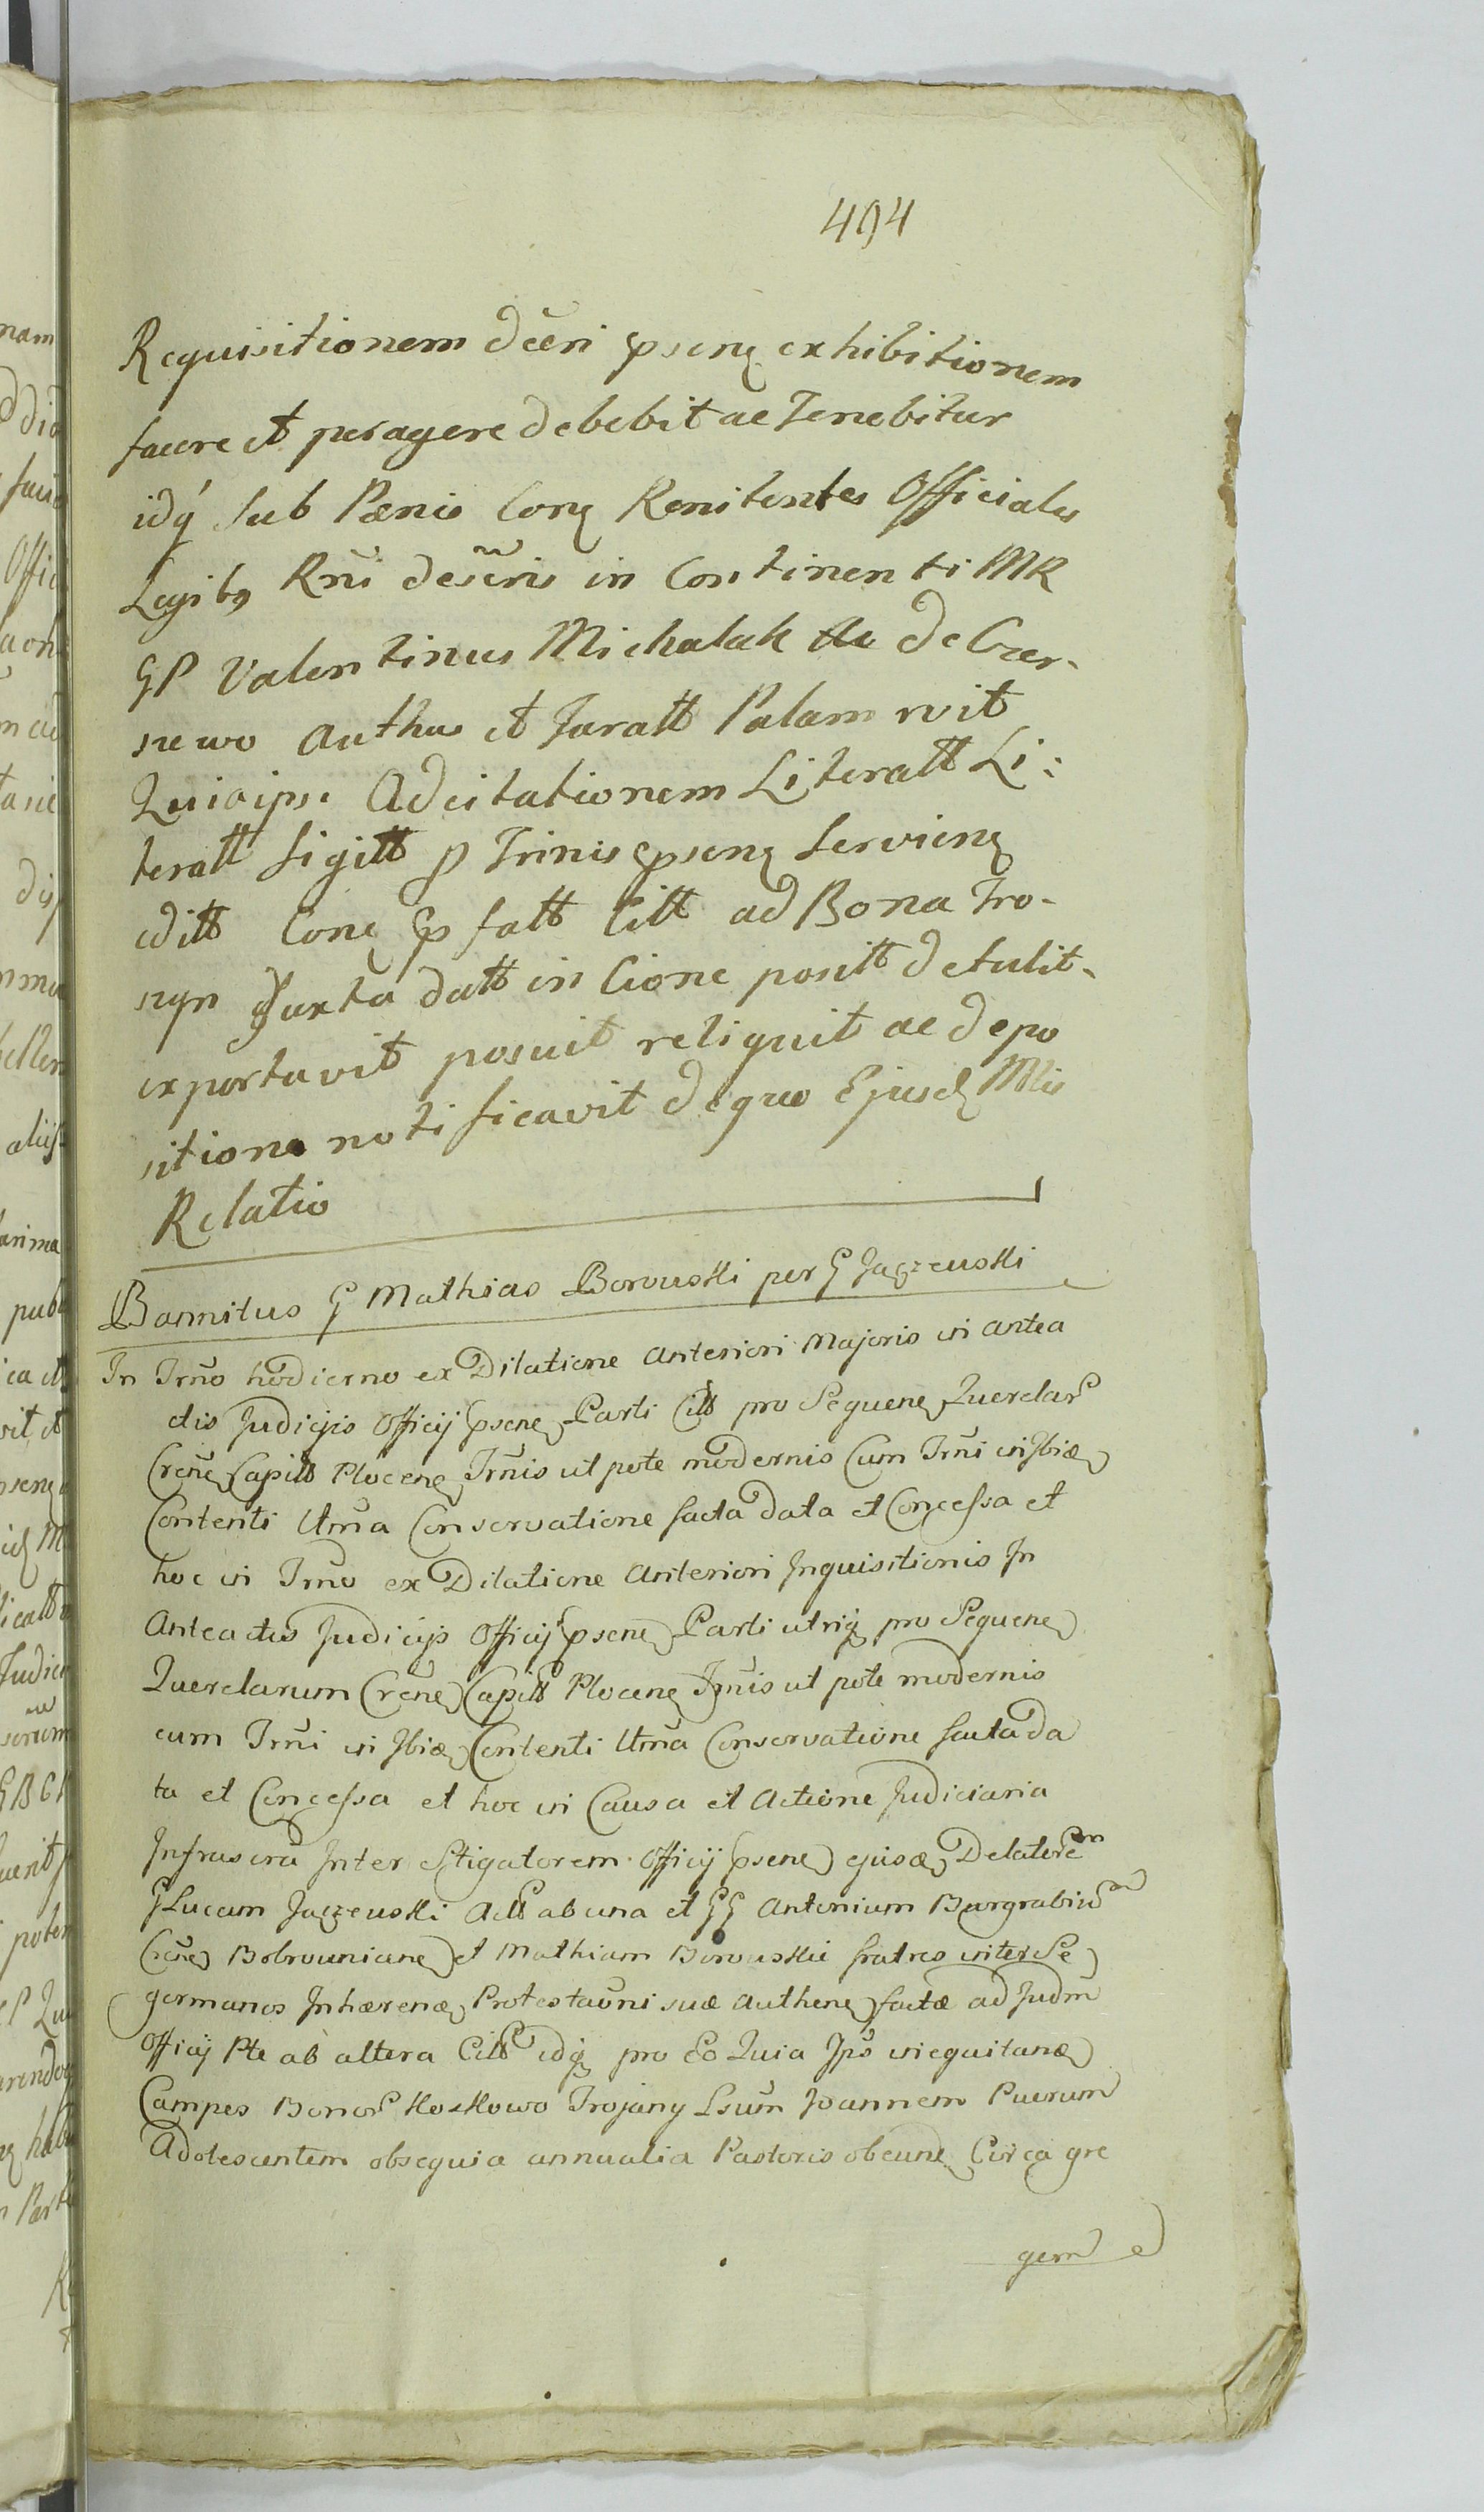 494
Requisitionem dceri pseng exhibitionem
facere et peragere debebit ac Tenebitur
idq́ sub Pænis Cong Renitentes Officiales
Legibg Rñi descris in Continenti MR
GP Valentinus Michalak de Czer-
niewo Authus et Juratt Palam rvit
Quia ipse Ad citationem Literatt Li:
teratt Sigitt p Trinis pseng Servieng
editt Cong p fatt Citt ad Bona Tro-
syn Juxta datt in Cione positt detulit
exportavit posuit reliquit ac depo
sitione notificavit de quo Ejusd Mlis
Relatio
Bannitus G Mathias Borowski per G Jaczewski
In Trño hodierno ex Dilatione Anteriori Majoris in antea
ctis Judicijs Officij pseng Parti Citt pro Sequeng Querelar
Creng Capitt Ploceng Trñis ut pote modernis Cum Trñi in Ibiæ
Contenti Utma Conservatione facta data et Concessa et
hoc in Trño ex Dilatione Anteriori Inquisitionis In
Anteactis Judicijs Officij pseng Parti utriq pro Sequeng
Querelarum Creng Capitt Ploceng Trñis ut pote modernis
cum Trñi in Ibiæ Contenti Utma Conservatione facta da
ta et Concessa et hoc in Causa et Actione Judiciaria
Infrascra Inter Istigatorem Officij pseng ejusq Delatorem
G Lucam Jaczewski Actt ab una et GG Antonium Burgrabium
Creng Bobrowniceng et Mathiam Borowskie fratres inter Se
germanos Inhæreng Protestaõni suæ Autheng factæ ad Judm
Officij Pte ab altera Citt idq pro Eo Quia Ips inequitang
Campos Bonor Koskowo Trojany Lsum Joannem Puerum
Adolescentem obsequia annualia Pastoris obeung Circa gre
gem